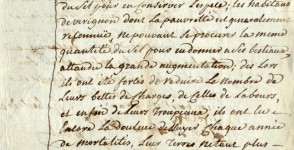 du Sel pour en conserver Lespece; les habitans
de virignon dont la pauvreté est generalement
reconnüe, ne pouvant se procurer la meme
quantité de Sel pour en donner a ses bestiaux,
attendu la grande augmentation, des Lors
ils ont été forcés de reduire Le Nombre de
Leurs bettes de charges, de Celles de Labours,
et enfin de Leurs troupeaux, ils ont eu
Encore La Douleur de Chaque année
de mortalités, Leur Terres N'etant plus